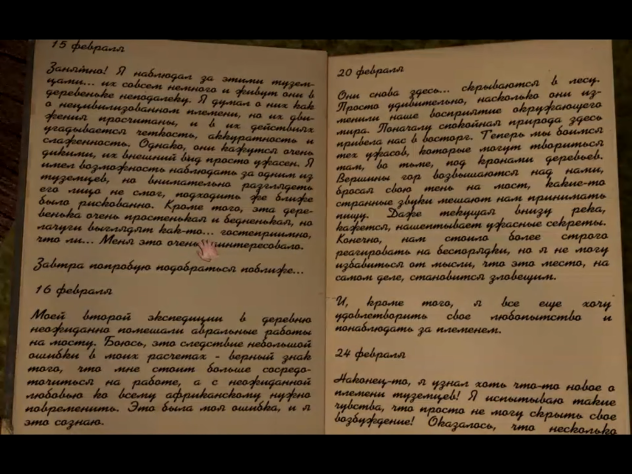 15 февраля
Занятно! Я наблюдал за этими тузем-
цами... их совсем немного и живут они в
деревеньке неподалеку. Я думал о них как
о нецивилизованном племени, но их дви-
жения просчитаны, и в их действиях
угадывается четкость, аккуратность и
слаженность. Однако, они кажутся очень
дикими, их внешний вид просто ужасен. Я
имел возможность наблюдать за одним из
туземцев, но внимательно разглядеть
его лицо не смог, подходить же ближе
было рискованно. Кроме того, эта дере-
венька очень простенькая и бедненькая, но
лачуги выглядят как-то... гостеприимно,
что ли... Меня это очень интересовало.
Завтра попробую подобраться поближе...
16 февраля
Моей второй экспедиции в деревню
неожиданно помешали авральные работы
на мосту. Боюсь, это следствие небольшой
ошибки в моих расчетах - верный знак
того, что мне стоит больше сосредо-
точиться на работе, а с неожиданной
любовью ко всему африканскому нужно
повременить. Это была моя ошибка, и я
это сознаю.
20 февраля
Они снова здесь... скрываются в лесу.
Просто удивительно, насколько они из-
менили наше восприятие окружающего
мира. Поначалу спокойная природа здесь
привела нас в восторг. Теперь мы боимся
тех ужасов, которые могут твориться
там, во тьме, под кронами деревьев.
Вершины гор возвышаются над нами,
бросая свою тень на мост, какие-то
странные звуки мешают нам принимать
пищу. Даже текущая внизу река,
кажется, нашептывает ужасные секреты.
Конечно, нам стоило более строго
реагировать на беспорядки, но я не могу
избавиться от мысли, что это место, на
самом деле, становится зловещим.
И, кроме того, я все еще хочу
удовлетворить свое любопытство и
понаблюдать за племенем.
24 февраля
Наконец-то, я узнал хоть что-то новое о
племени туземцев! Я испытываю такие
чувства, что просто не могу скрыть свое
возбуждение! Оказалось, что несколько